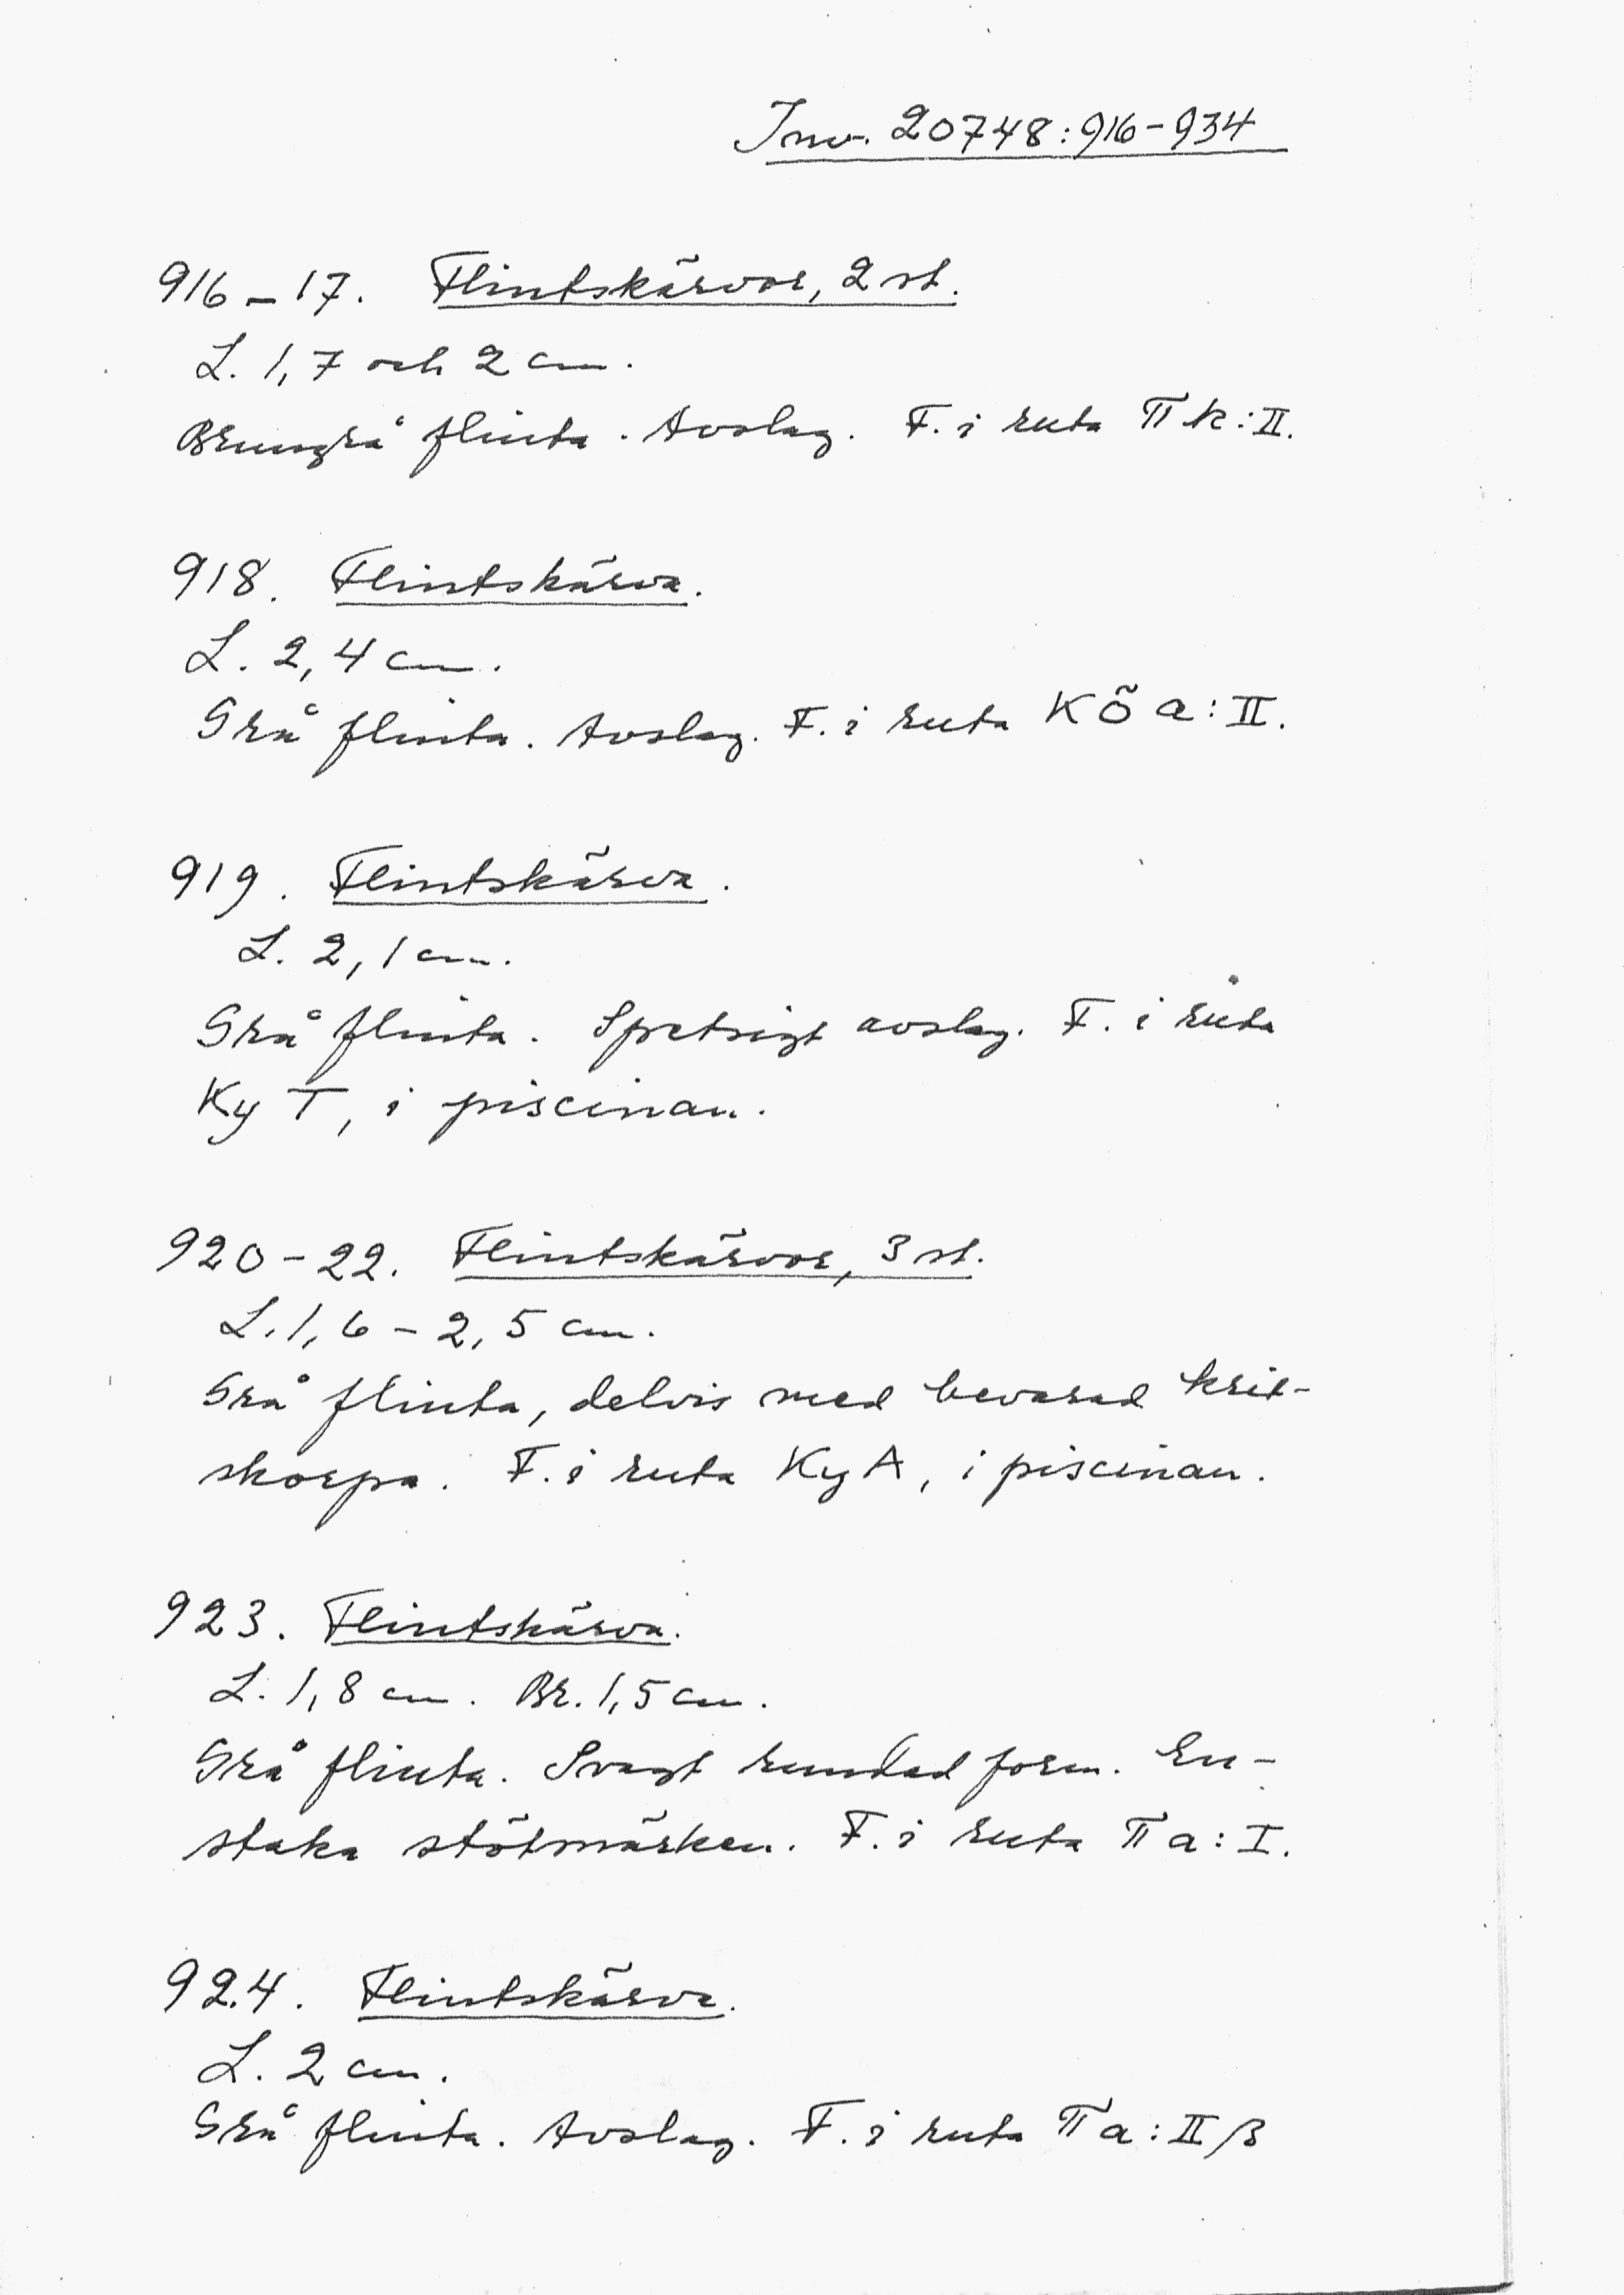 Inv. 20748:916-934
916-17. Flintskärvor, 2 st.
L. 1,7 och 2 cm.
Brungrå flinta. Avslag. F. i ruta Π k:II.
918. Flintskärva.
L. 2,4 cm.
Grå flinta. Avslag. F. i ruta KÖ a:II.
919. Flintskärva.
L. 2,1 cm.
Grå flinta. Spetsigt avslag. F. i ruta
Ky T, i piscinan.
920-22. Flintskärvor, 3 st.
L. 1,6-2,5 cm.
Grå flinta, delvis med bevarad krit-
skorpa. F. i ruta Ky A, i piscinan.
923. Flintskärva.
L. 1,8 cm. Br. 1,5 cm.
Grå flinta. Svagt rundad form. En-
staka stötmärken. F. i ruta Π a:I.
924. Flintskärva.
L. 2 cm.
Grå flinta. Avslag. F. i ruta Π a:II/3